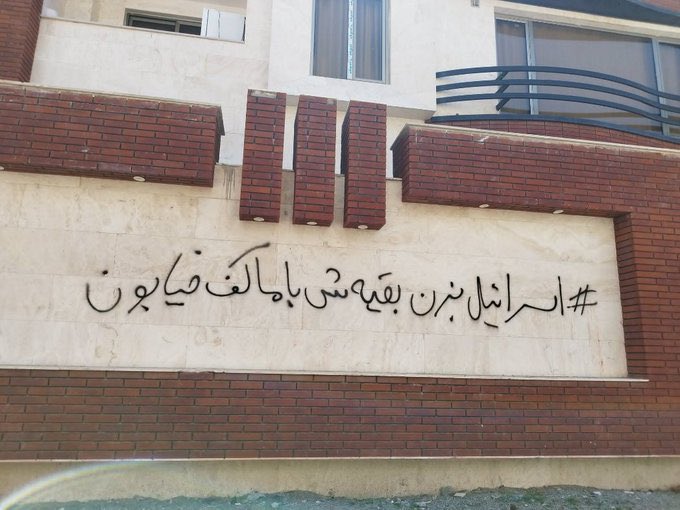 #اسرائیل بزن بقیه ش با ما کف خیابون